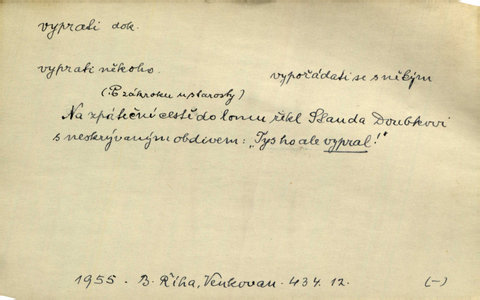 vyprati dok.
vyprati někoho. vypořádati se s někým
(P zákroku u starosty)
Na zpáteční cestě do lomu řekl Standa Doubkovi
s neskrývaným obdivem: „Tys ho ale vypral!"
1955 - B. Říha, Venkovan. 434. 12. (-)